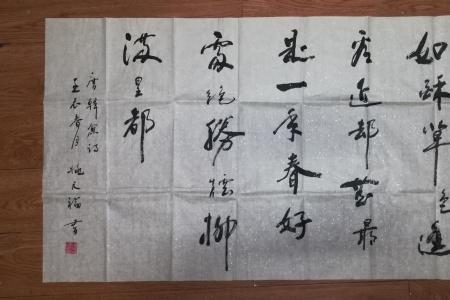 如酥草色遙
看近却無最
是一年春好
處絕勝煙柳
滿皇都
唐韓愈詩
春月 書